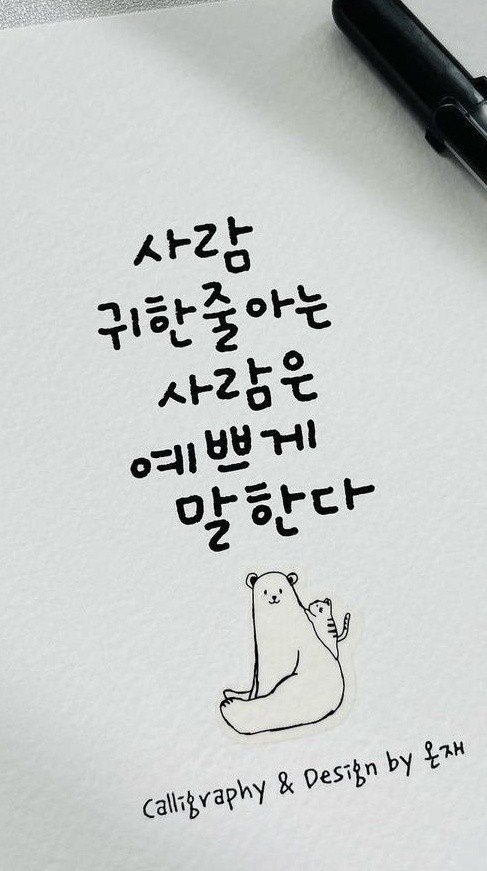 사람
귀한줄아는
사람은
예쁘게
말한다
Calligraphy & Design by 온재